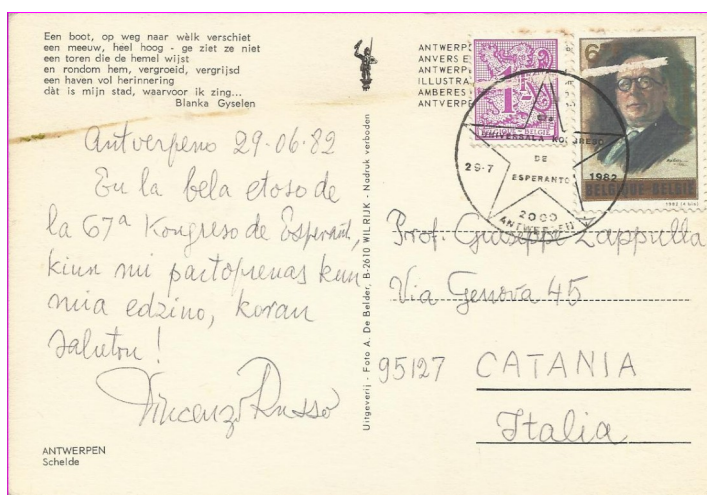 Een boot, op weg naar wèlk verschiet
een meeuw, heel hoog - ge ziet ze niet
een toren die de hemel wijst
en rondom hem, vergroeid, vergrijsd
een haven vol herinnering
dàt is mijn stad, waarvoor ik zing...
Blanka Gyselen
Antverpeno 29-06-82
En la bela etoso de
la 67a Kongreso de Esperant,
kiun mi partoprenas kun
mia edzino, koran
saluton!
Vincenzo Russo
ANTWERPEN
Schelde
Uitgeverij - Foto A. De Belder, B-2610 WILRIJK - Nadruk verboden
ANTWERP
ANVERS E
ANTWERP
ILLUSTRA
AMBERES
ANTVERPE
1½
BELGIQUE - BELGIË
UNIVERSALA KONGRESO
DE
ESPERANTO
29-7
1982
2000
ANTWERPEN
BELGIQUE-BELGIË
Prof. Giuseppe Zappulla
Via Genova 45
95127 CATANIA
Italia